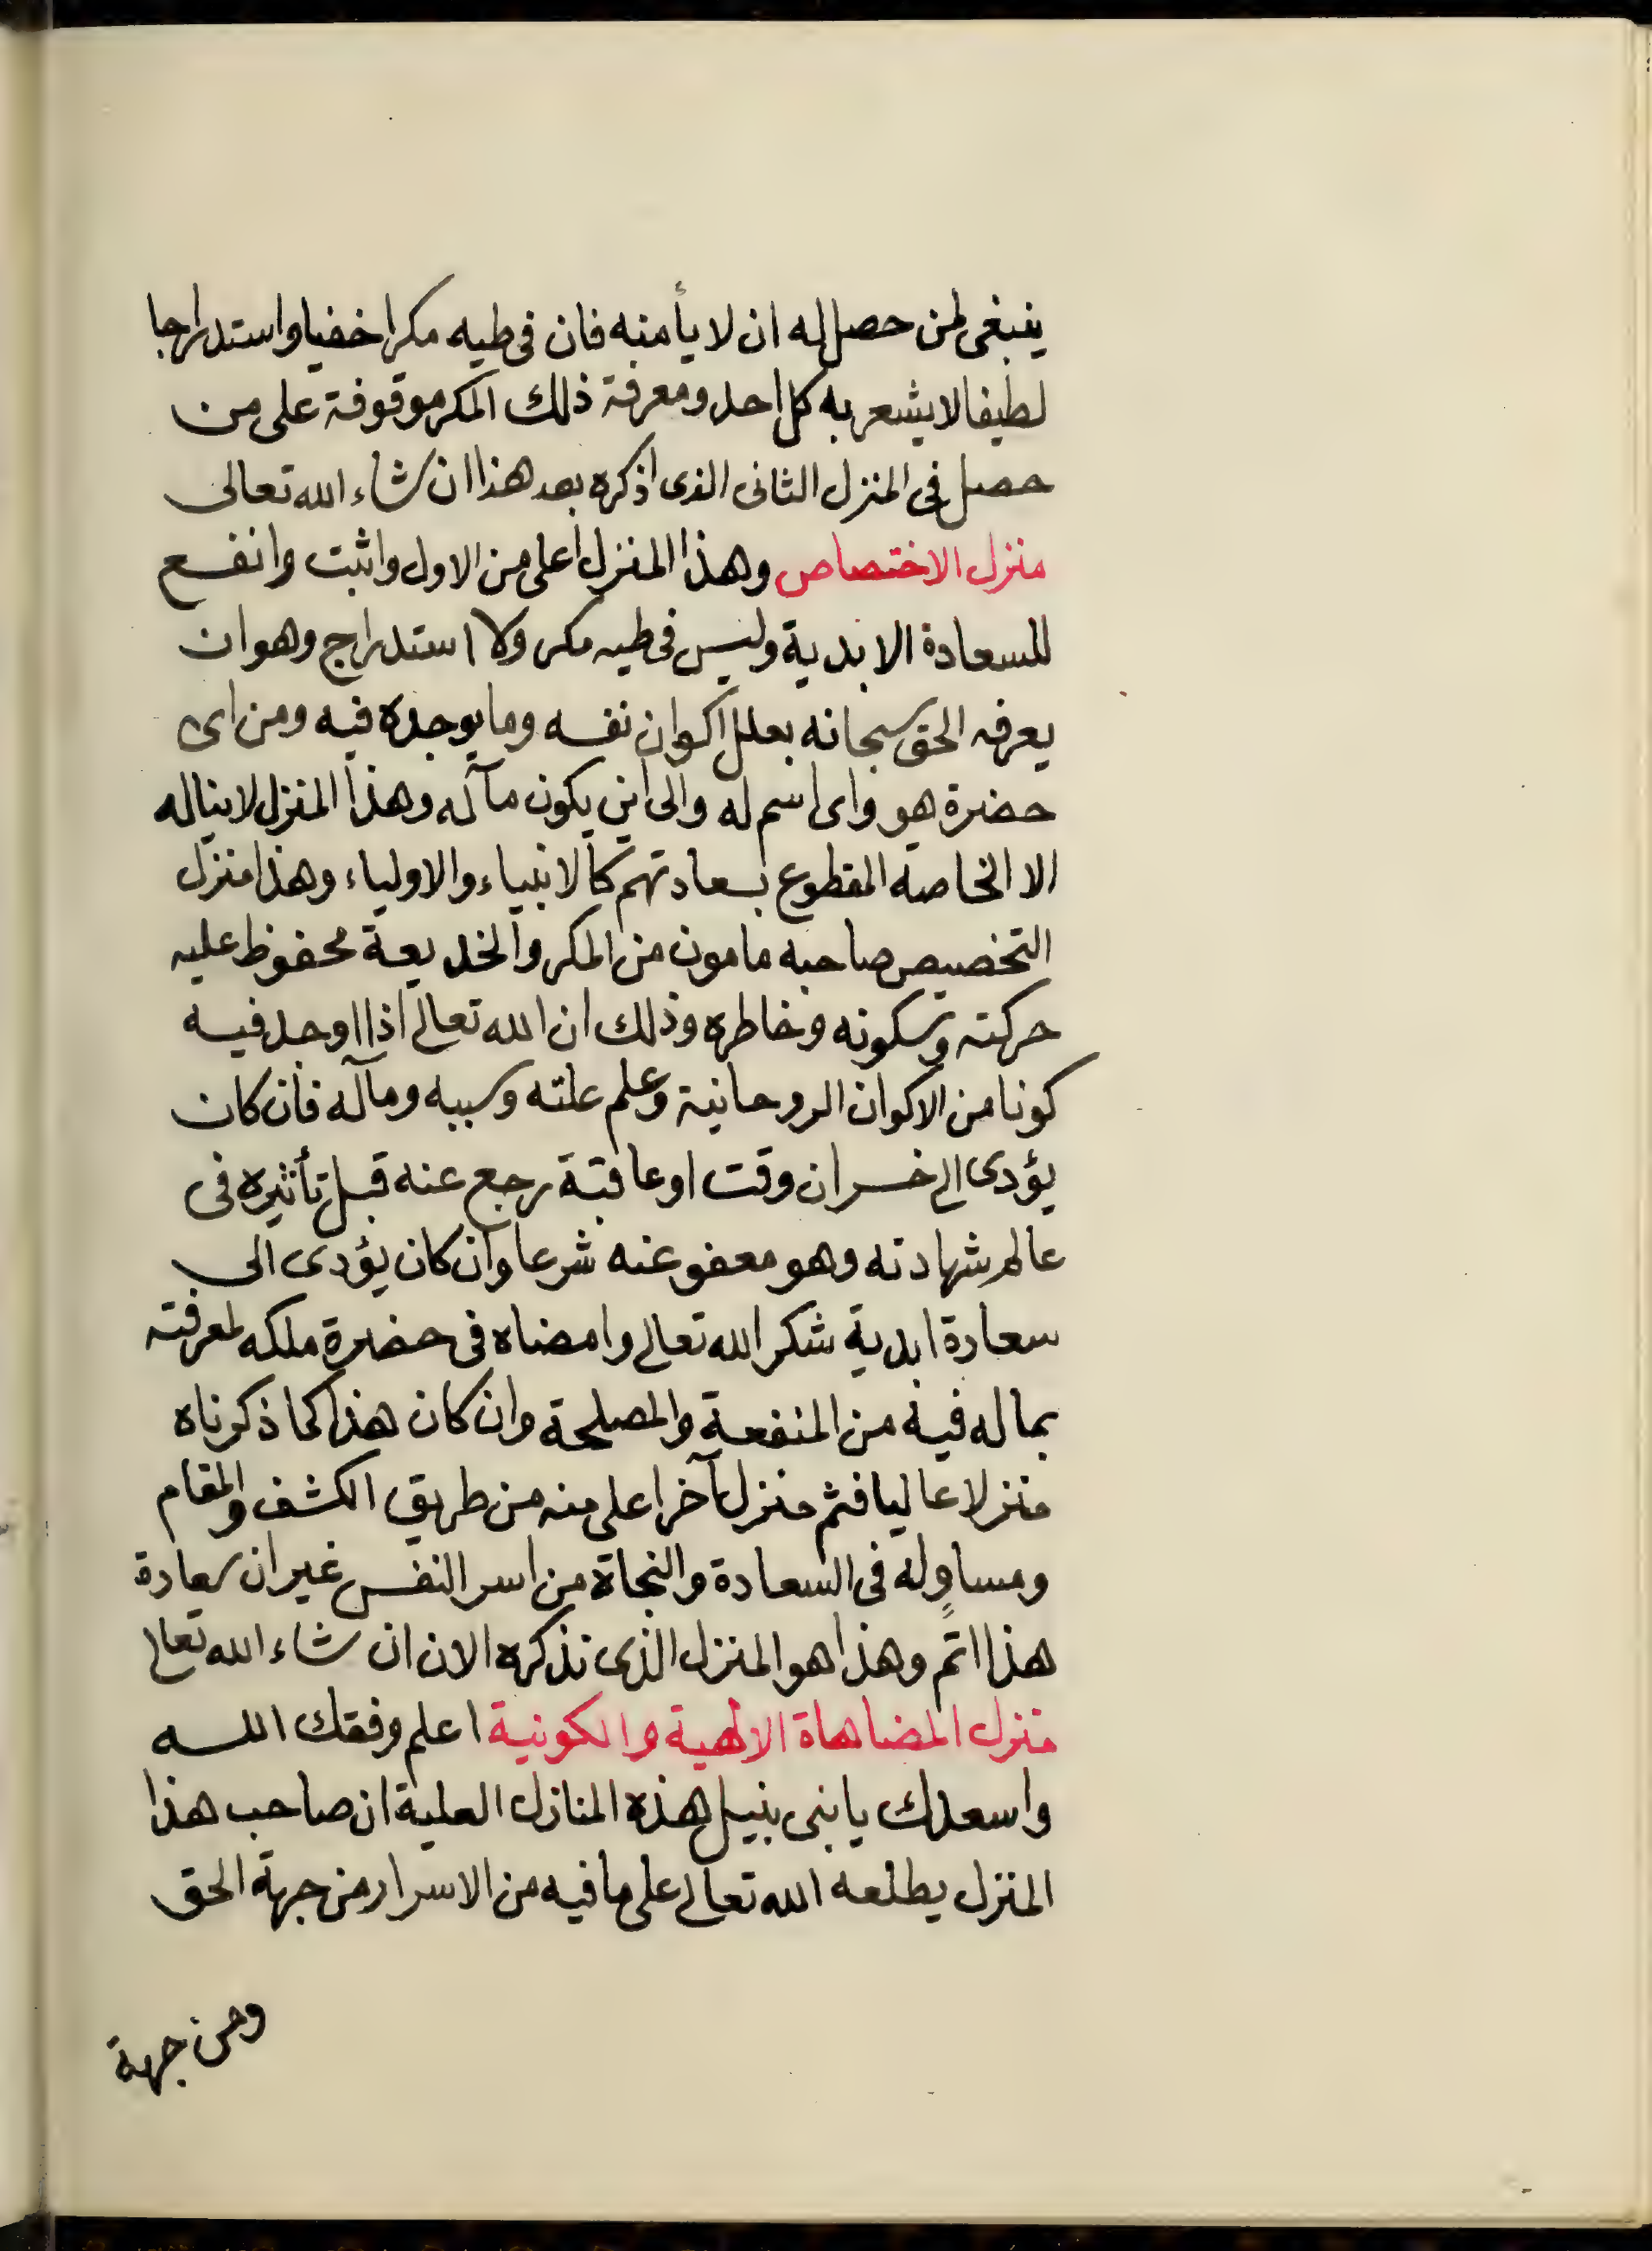 ينبغى لمن حصل له ان لا يأمنه فان فى طيه مكرا خفيا واستدراجا
لطيفا لا يشعر به كل احد ومعرفة ذلك المكر موقوفة على من
حصل فى المنزل الثانى الذى اذكره بعد هذا ان شاء الله تعالى
منزل الاختصاص وهذا المنزل اعلى من الاول واثبت وانفع
للسعادة الابدية وليس فى طيه مكر ولا استدراج وهو ان
يعرفه الحق سبحانه بعلل اكوان نفسه وما يوجده فيه ومن اى
حضرة هو واى اسم له والى اين يكون مآله وهذا المنزل لا يناله
الا الخاصه المقطوع بسعادتهم كالانبياء والاولياء وهذا منزل
التخصيص صاحبه مامون من المكر والخديعة محفوظ عليه
حركته وسكونه وخاطره وذلك ان الله تعالى اذا اوجد فيه
كونا من الاكوان الروحانية وعلم علته وسببه ومآله فان كان
يؤدى الى خسران وقت او عاقبة رجع عنه قبل تأثيره فى
عالم شهادته وهو معفو عنه شرعا وان كان يؤدى الى
سعادة ابدية شكر الله تعالى وامضاه فى حضرة ملكه لمعرفته
بما له فيه من المنفعة والمصلحة وان كان هذا كما ذكرناه
منزلا عاليا فثم منزل آخر اعلى منه من طريق الكشف والمقام
ومساوٍ له فى السعادة والنجاة من اسر النفس غير ان سعادة
هذا اتم وهذا هو المنزل الذى نذكره الان ان شاء الله تعالى
منزل المضاهاة الالهية والكونية اعلم وفقك الله
واسعدك يا بنى بنيل هذه المنازل العلية ان صاحب هذا
المنزل يطلعه الله تعالى على ما فيه من الاسرار من جهة الحق
ومن جهة